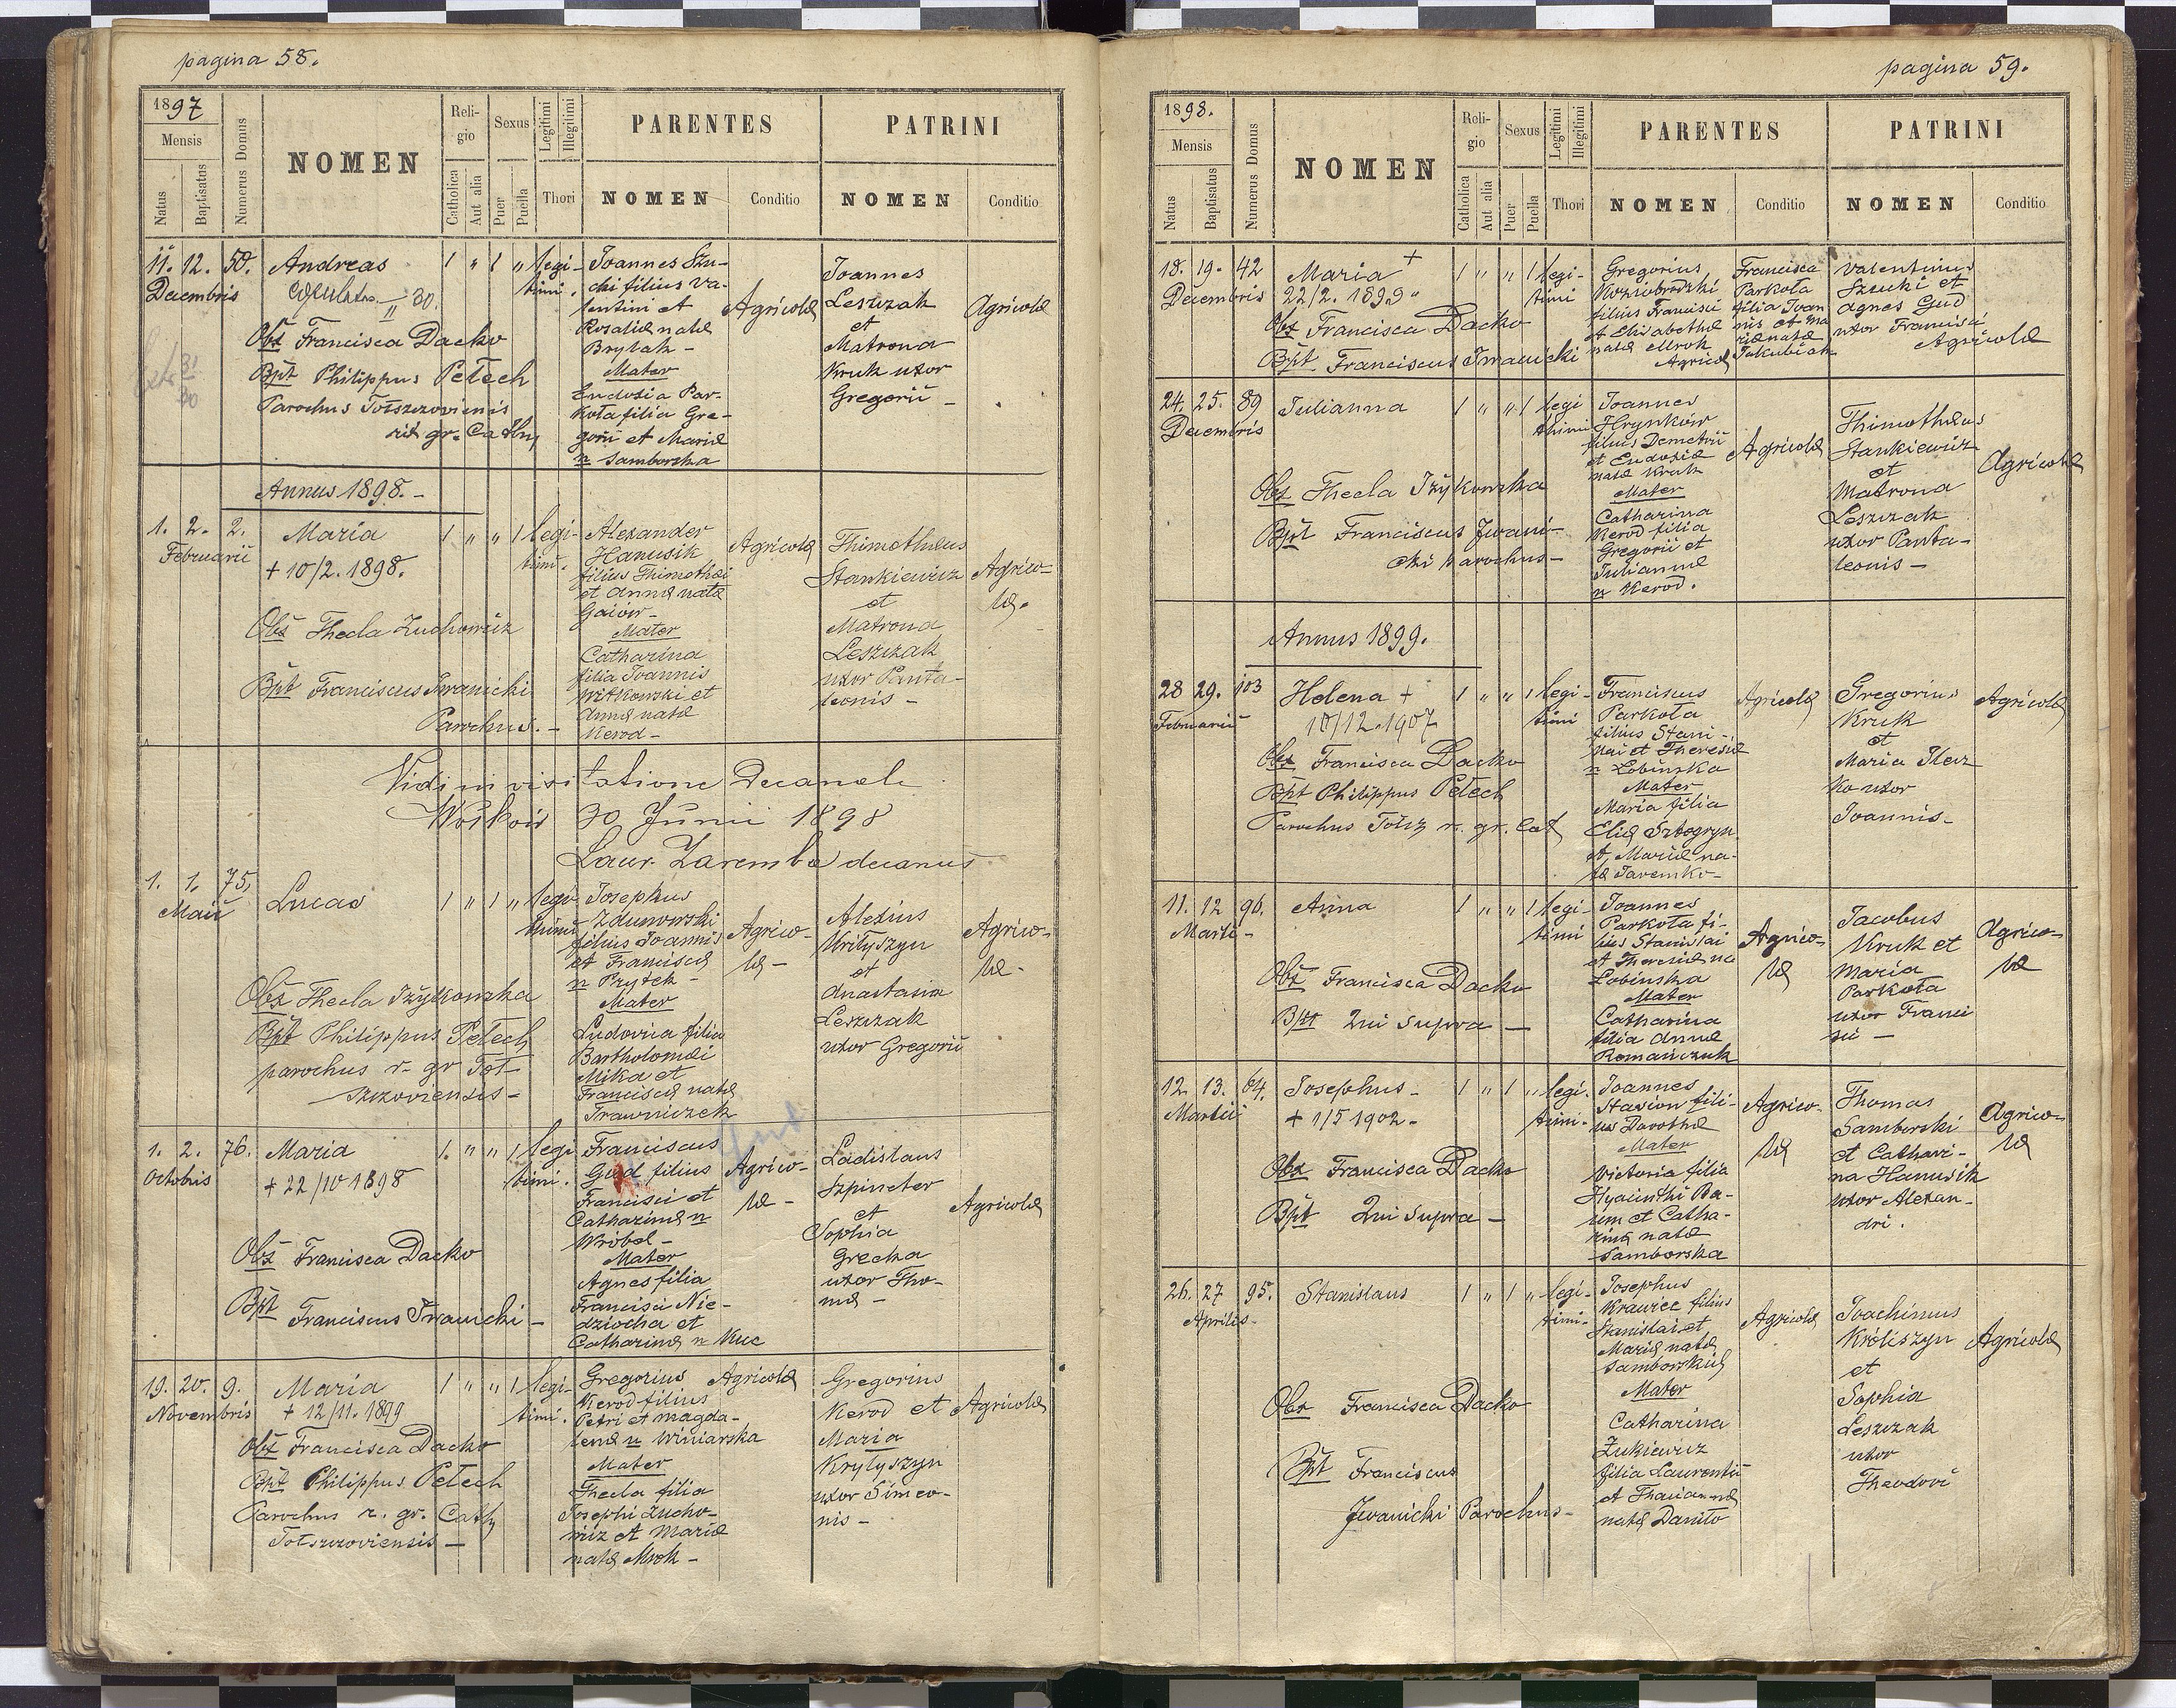 pagina 58.
1897
Mensis
Natus
Baptisatus
Numerus Domus
NOMEN
Reli-
gio
Catholica
Aut alia
Sexus
Puer
Puella
Legitimi
Illegitimi
Thori
PARENTES
NOMEN
Conditio
PATRINI
NOMEN
Conditio
11. 12. 50.
Decembris
Andreas
Obs Francisca Dacko
Bpt Philippus Petech
Parochus Totszczoviensis
rit gr. Cath
1 " 1 "
legi-
timi.
Joannes Szu-
cki filius Va-
lentini et
Rosaliæ natæ
Brylak -
Mater
Eudosia Par-
kota filia Gre-
gorii et Mariæ
n Samborska
Agricolæ
Joannes
Leszczak
et
Matrona
Kruk uxor
Gregorii -
Agricolæ
Annus 1898. -
1. 2. 2.
Februarii
Maria
+ 10/2. 1898.
Obs Thecla Zuchowicz
Bpt Franciscus Iwanicki
Parochus. -
1 " " 1
legi-
timi.
Alexander
Hanusik
filius Thimothæi
et Annæ natæ
Gaiów -
Mater
Catharina
filia Joannis
Witkowski et
Annæ natæ
Kerod -
Agricolæ
Thimothæus
Stankiewicz
et
Matrona
Leszczak
uxor Panta-
leonis -
Agrico-
læ.
Vidi in visitatione Decanali
Wołków 30 Junii 1898
Laur. Zaremba decanus
1. 1. 75.
Maii
Lucas
Obs Thecla Iżykowska
Bpt Philippus Petech
parochus r. gr Tot-
szczoviensis -
1 " 1 "
legi-
timi
Josephus
Zdunowski
filius Joannis
et Franciscæ
n Prytek -
Mater
Ludovica filia
Bartholomæi
Mika et
Franciscæ natæ
Trawniczek
Agrico-
læ -
Alexius
Krityszyn
et
Anastasia
Leszczak
uxor Gregorii
Agrico-
læ -
1. 2. 76.
Octobris
Maria
+ 22/10 1898
Obs Francisca Dacko
Bpt Franciscus Iwanicki -
1. " " 1
legi
timi.
Franciscus
Gud filius
Francisci et
Catharinæ n
Wróbel -
Mater
Agnes filia
Francisci Nie-
dziocha et
Catharinæ n Kuc
Agrico-
læ -
Gud
Ladislaus
Szpineter
et
Sophia
Grecka
uxor Tho-
mæ -
Agricolæ
19. 20. 9.
Novembris
Maria
+ 12/11. 1899
Obs Francisca Dacko
Bpt Philippus Petech
Parochus r. gr. Cath
Totszczoviensis -
1 " " 1
legi-
timi.
Gregorius
Kerod filius
Petri et Magda-
lenæ n Winiarska
Mater
Thecla filia
Josephi Zucho-
wicz et Mariæ
natæ Mrok -
Agricolæ
Gregorius
Kerod et
Maria
Krytyszyn
uxor Simeo-
nis -
Agricolæ
pagina 59.
1898.
Mensis
Natus
Baptisatus
Numerus Domus
NOMEN
Reli-
gio
Catholica
Aut alia
Sexus
Puer
Puella
Legitimi
Illegitimi
Thori
PARENTES
NOMEN
Conditio
PATRINI
NOMEN
Conditio
18. 19. 42
Decembris
Maria +
22/2. 1899
Obs Francisca Dacko
Bpt Franciscus Iwanicki
1 " " 1
legi-
timi
Gregorius
Koziobrodzki
filius Francisci
et Elisabethæ
natæ Mrok
Agricolæ
Francisca
Parkota
filia Joan
nis et Ma
riæ natæ
Jakubiak
Valentinus
Szucki et
Agnes Gud
uxor Francisci
Agricolæ
24. 25. 89
Decembris
Julianna
Obs Thecla Iżykowska
Bpt Franciscus Iwani-
cki parochus -
1 " " 1
legi
timi
Joannes
Hrynków
filius Demetrii
et Eudosiæ
natæ Kruk
Mater
Catharina
Kerod filia
Gregorii et
Juliannæ
n Kerod.
Agricolæ
Thimothæus
Stankiewicz
et
Matrona
Leszczak
uxor Panta-
leonis -
Agricolæ
Annus 1899.
28 29. 103
Februarii
Helena +
10/12.1907
Obs Francisca Dacko
Bpt Philippus Petech
Parochus Totsz r. gr. Cat
1 " " 1
legi-
timi
Franciscus
Parkota
filius Stani-
slai et Theresiæ
n Lobinska
Mater
Maria filia
Eliæ Sztogryn
et Mariæ na-
tæ Jaremko -
Agricolæ
Gregorius
Kruk
et
Maria
uxor
Joannis -
Agricolæ
11. 12 96.
Marti -
Anna
Obs Francisca Dacko
Bpt Qui Supra -
1 " " 1
legi-
timi
Joannes
Parkota fi-
lius Stanislai
et Theresiæ na
Lobinska
Mater
Catharina
filia Annæ
Romańczuk
Agrico-
læ
Jacobus
Kruk et
Maria
Parkota
uxor Franci
sci -
Agrico-
læ
12. 13. 64.
Martii
Josephus -
+ 1/5 1902 -
Obs Francisca Dacko
Bpt Qui Supra -
1 " 1 "
legi.
timi.
Joannes
Stasion fili-
us Dorothæ
Mater
Victoria filia
Hyacinthi Ba-
um et Catha-
rinæ natæ
Samborska
Agrico-
læ
Thomas
Samborski
et Cathari-
na Hanusik
uxor Alexan-
dri.
Agrico-
læ
26. 27 95.
Aprilis -
Stanislaus
Obs Francisca Dacko
Bpt Franciscus
Iwanicki Parochus -
1 " 1 "
legi-
timi-
Josephus
Krawiec filius
Stanislai et
Mariæ natæ
Samborskiej
Mater
Catharina
Żukiewicz
filia Laurentii
et Thaciannæ
natæ Daniło
Agricolæ
Joachimus
Króliszyn
et
Sophia
Leszczak
uxor
Theodori
Agricolæ